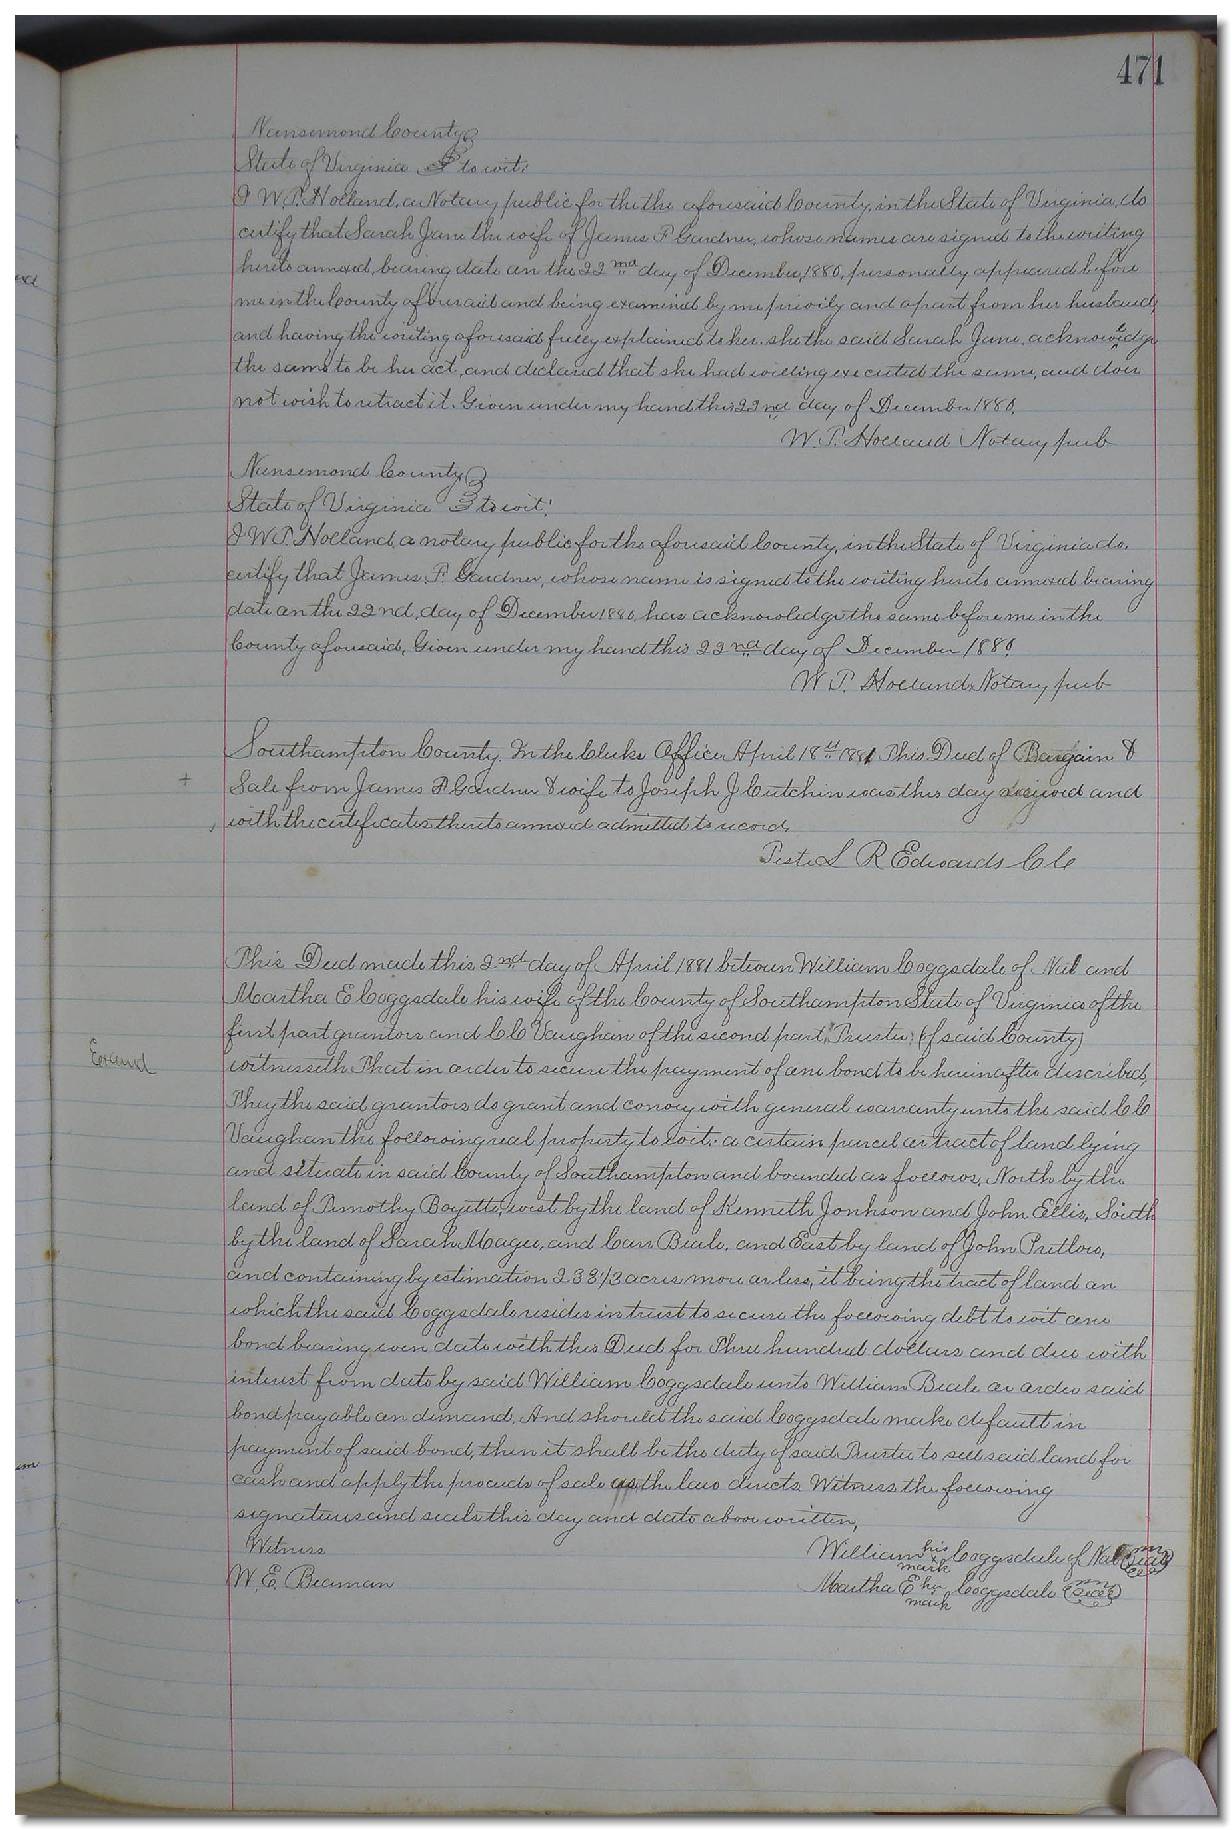 471
Nansemond County
State of Virginia to wit:
I W. P. Holland, a Notary public for the the aforesaid County, in the State of Virginia, do
certify that Sarah Jane the wife of James P Gardner, whose names are signed to the writing
hereto annexed, bearing date on the 22nd day of December, 1880, personally appeared before
me in the County aforesaid and being examined by me privily and apart from her husband,
and having the writing aforesaid fully explained to her. she the said Sarah Jane, acknowledge
the same to be her act, and declared that she had willing executed the same, and does
not wish to retract it. Given under my hand this 22nd day of December 1880.
W. P. Holland Notary pub
Nansemond County
State of Virginia to wit:
I W. P. Holland, a notary public for the aforesaid County, in the State of Virginia do.
certify that James, P. Gardner, whose name is signed to the writing hereto annexed bearing
date on the 22nd, day of December 1880, has acknowledge the same before me in the
County aforesaid, Given under my hand this 22nd day of December 1880.
W. P. Holland, Notary pub
Southampton County. In the Clerks Office April 18th 1881 This Deed of Bargain &
+
Sale from James P Gardner & wife to Joseph J Cutchin was this day received and
with the certificates thereto annexed admitted to record,
Teste L R Edwards Clk
This Deed made this 2nd day of April 1881 between William Coggsdale of Nat and
Martha E Coggsdale his wife of the County of Southampton State of Virginia of the
first part grantors and C C Vaughan of the second part, Trustee (of said County)
Exaund
witnesseth That in order to secure the payment of one bond to be hereinafter described,
They the said grantors do grant and convey with general warranty unto the said C C
Vaughan the following real property to wit: a certain parcel or tract of land lying
and situate in said County of Southampton and bounded as follows, North by the
land of Timothy Boyette, west by the land of Kenneth Jonhson and John Ellis, South
by the land of Sarah Magee, and Carr Beale, and East by land of John Pretlow,
and containing by estimation 233 1/3 acres more or less, it being the tract of land on
which the said Coggsdale resides in trust to secure the following debt to wit one
bond bearing even date with this Deed for Three hundred dollars and due with
interest from date by said William Coggsdale unto William Beale or order said
bond payable on demand. And should the said Coggsdale make default in
payment of said bond, then it shall be the duty of said Trustee to sell said land for
cash and apply the proceeds of sale as the law directs Witness the following
signatures and seals this day and date above written,
Witness
William his x mark Coggsdale of Nat Seal
W. E. Beaman
Martha E her mark Coggsdale Seal